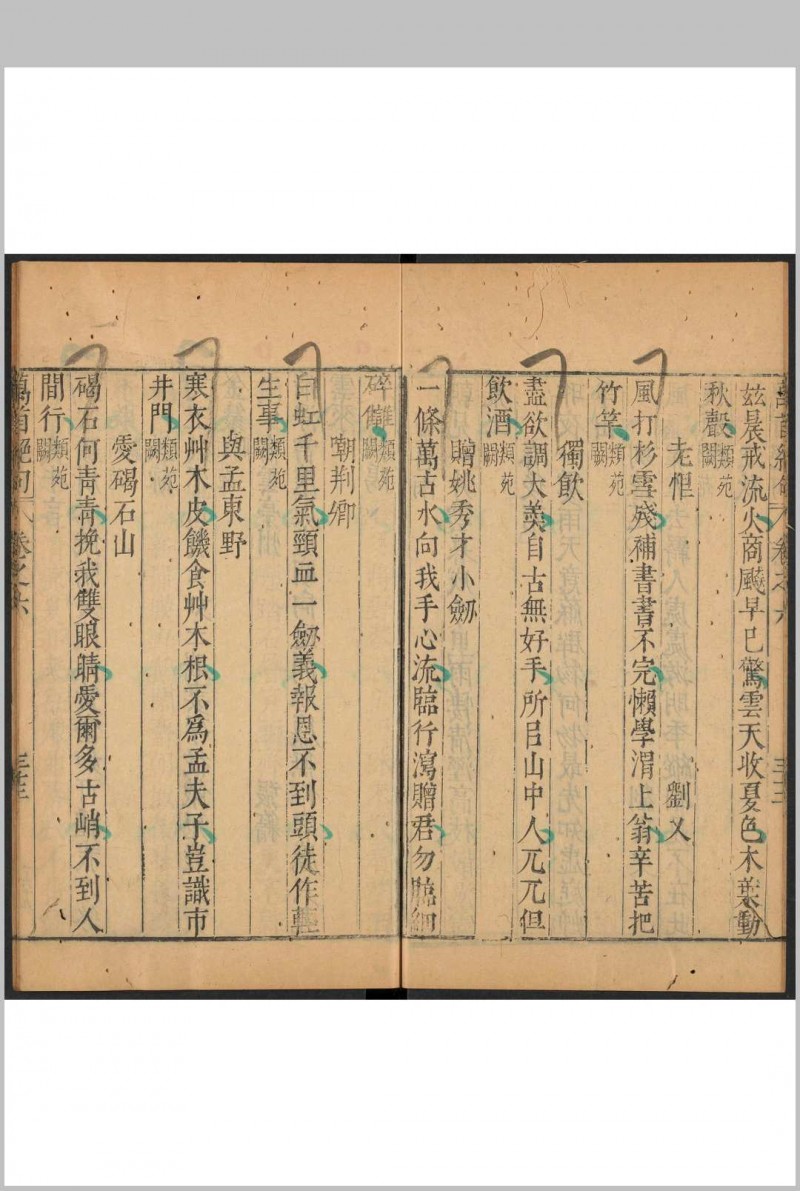 茲晨戒流火商飈早已驚雲天收夏色木葉動
秋聲類苑闕
老恨
劉乂
風打杉雪殘補書書不完懶學渭上翁辛苦把
竹竿類苑闕
獨飲
盡欲調大羹自古無好手所㠯山中人兀兀但
飲酒類苑闕
贈姚秀才小劒
一條萬古水向我手心流臨行瀉贈君勿臨細
碎讎類苑闕
嘲荆卿
白虹千里氣頸血一劒義報恩不到頭徒作輕
生事類苑闕
與孟東野
寒衣艸木皮饑食艸木根不爲孟夫子豈識市
井門類苑闕
愛碣石山
碣石何青青挽我雙眼睛愛爾多古峭不到人
間行類苑闕
萬首絕句 卷之六 三三